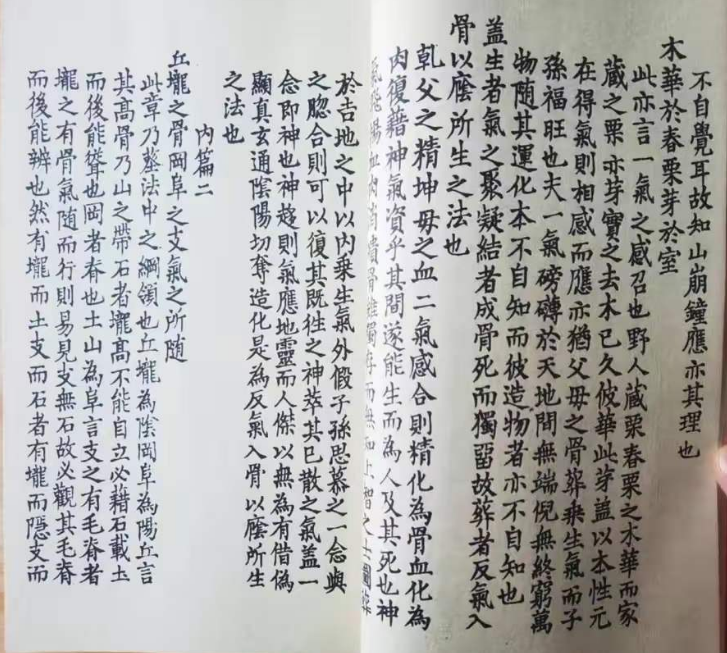 不自覺耳故知山崩鐘應亦其理也
木華於春栗芽於室
此亦言一氣之感召也野人藏栗春栗之木華而家
藏之栗亦芽實之去木已久彼華此芽蓋以本性元
在得氣則相感而應亦猶父母之骨葬乘生氣而子
孫福旺也夫一氣磅礴於天地間無端倪無終窮萬
物隨其運化本不自知而彼造物者亦不自知也
蓋生者氣之聚凝結者成骨死而獨留故葬者反氣入
骨以廕所生之法也
乹父之精坤母之血二氣感合則精化為骨血化為
肉復藉神氣資乎其間遂能生而為人及其死也神
氣飛揚血肉消潰骨雖獨存而無知上智之士圖葬
於吉地之中以内乗生氣外假子孫思慕之一念與
之脗合則可以復其既徃之神萃其已散之氣盖一
念即神也神趍則氣應地靈而人傑以無為有借偽
顯真玄通陰陽切奪造化是為反氣入骨以廕所生
之法也
内篇二
丘壠之骨岡阜之支氣之所随
此章乃塟法中之綱領也丘壠為陰岡阜為陽丘言
其高骨乃山之帶石者壠高不能自立必藉石載土
而後能聳也岡者春也土山為阜言支之有毛脊者
壠之有骨氣随而行則易見支無石故必觀其毛脊
而後能辨也然有壠而土支而石者有壠而隠支而